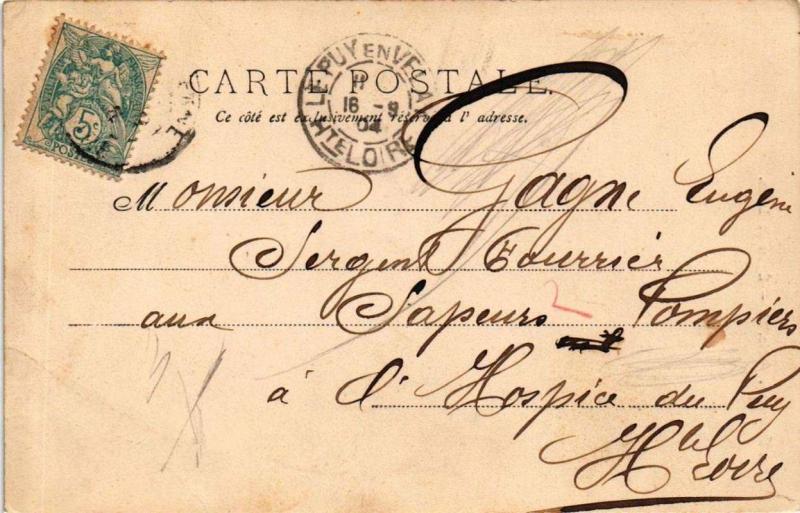 CARTE POSTALE.
Ce côté est exclusivement réservé à l'adresse.
LE PUY EN VELAY
11
16 - 9
04
HTE LOIRE
5c
POSTES
Monsieur Gagne Eugène
Sergent Fourrier
aux Sapeurs Pompiers
à l'Hospice du Puy
Hte Loire